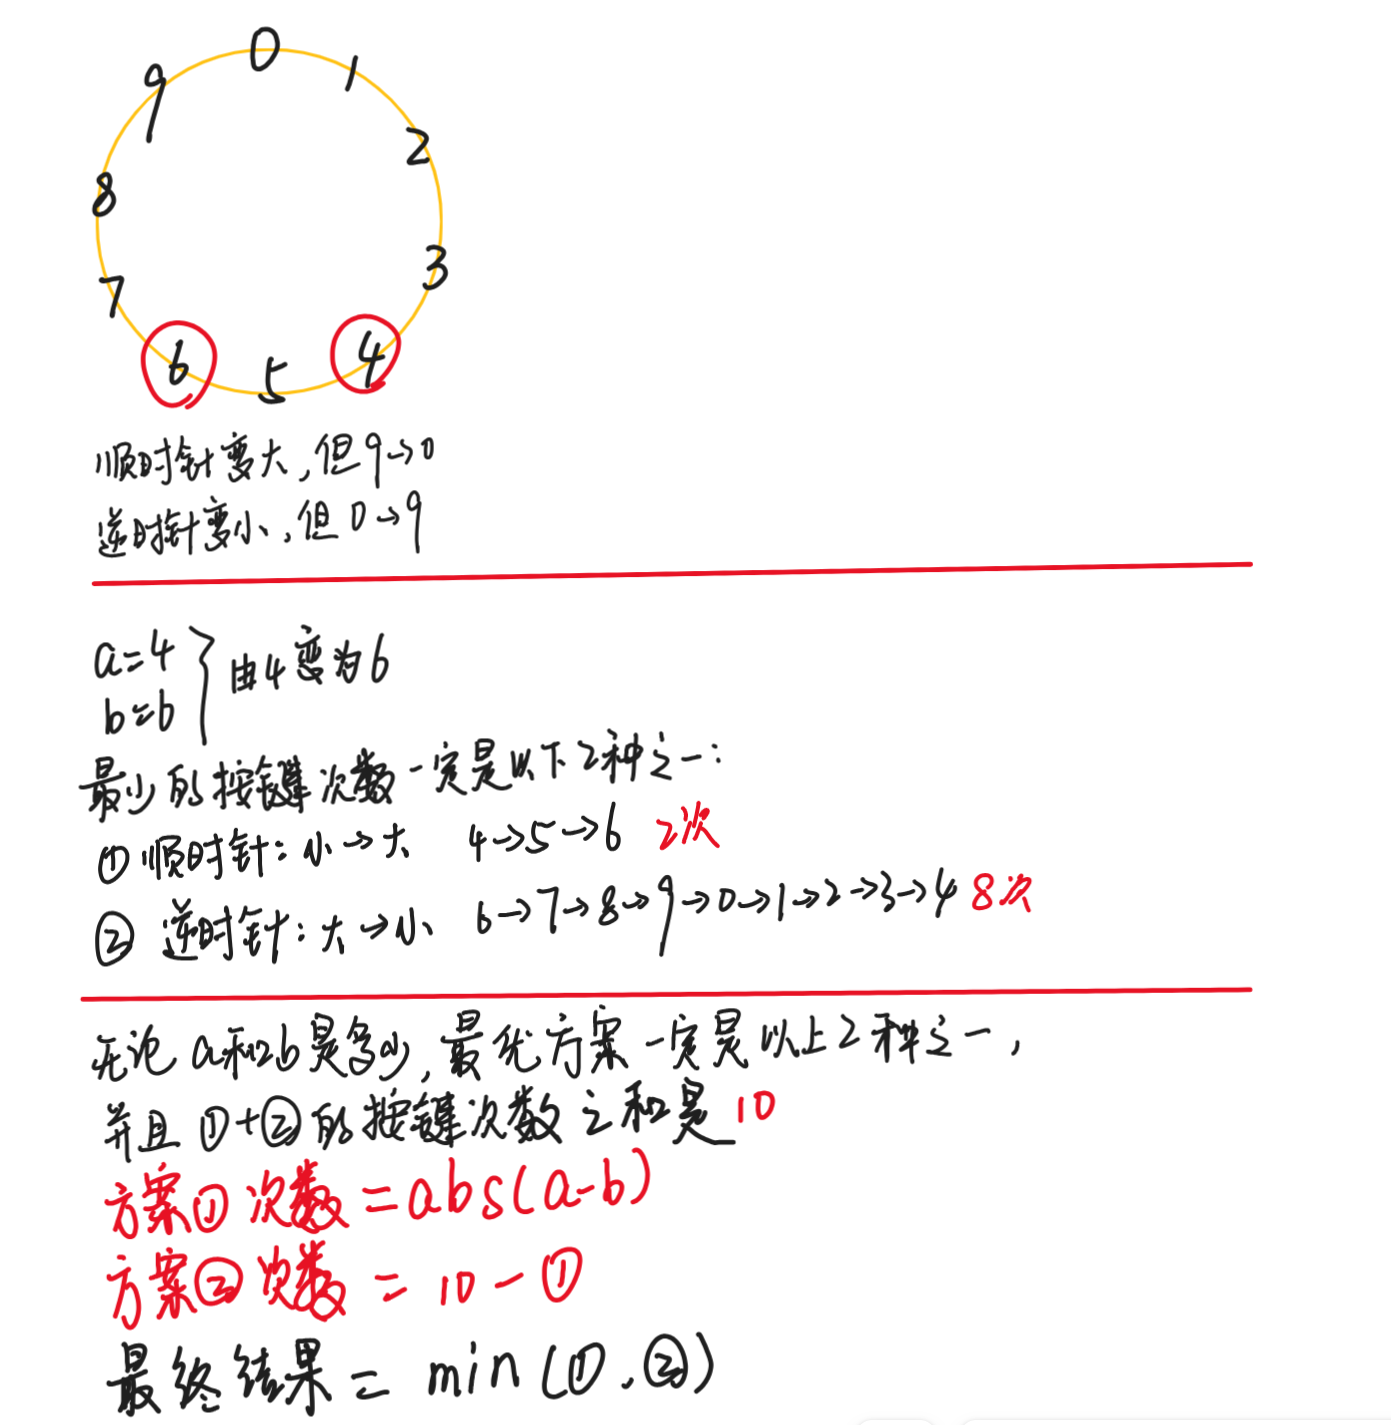 0
1
2
3
4
5
6
7
8
9
顺时针变大,但9→0
逆时针变小,但0→9
a=4
b=6
由4变为6
最少的按键次数一定是以下2种之一:
① 顺时针: 小→大 4→5→6 2次
② 逆时针: 大→小 6→7→8→9→0→1→2→3→4 8次
无论a和b是多少,最优方案一定是以上2种之一,
并且①+②的按键次数之和是10
方案①次数=abs(a-b)
方案②次数=10-①
最终结果=min(①,②)